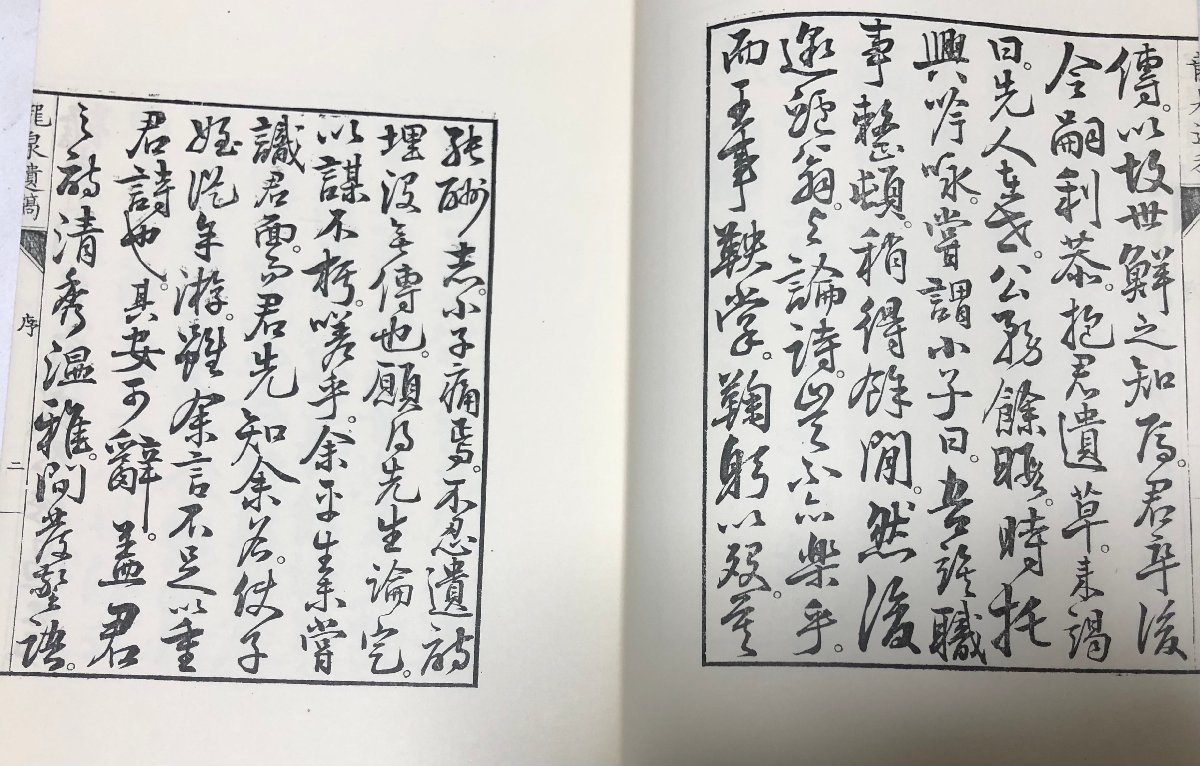 傳。以故世鮮之知焉。君卒後
令嗣利恭。抱君遺草。来謁
曰。先人在世。公務餘暇。時托
興吟咏。嘗謂小子曰。吾職
事整頓。稍得餘閒。然後
邀鱸翁。与論詩。豈不亦樂乎。
而王事鞅掌。鞠躬以歿。莫
能酬志。小子痛焉。不忍遺詩
埋没無傳也。願得先生論定。
以謀不朽。嗟乎。余平生未嘗
識君面。而君先知余名。使子
姪從余游。雖余言不足以重
君詩也。其安可辭。蓋君
之詩清秀温雅。間發警語。
龍泉遺稿
序
二